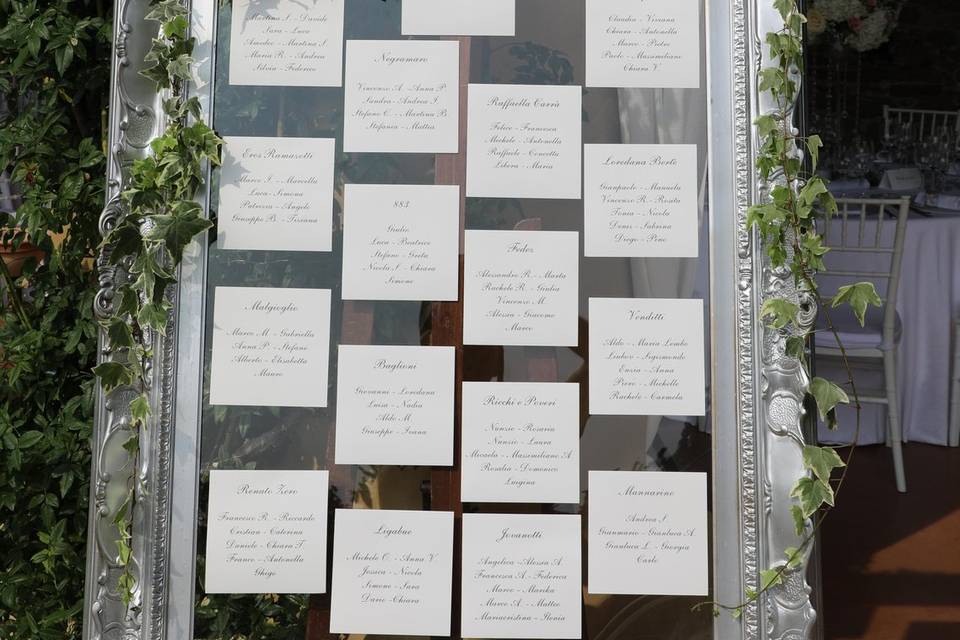 Martina S - Davide
Sara - Luca
Amedeo - Martina S
Maria R. - Andrea
Silvia - Federico
Claudia - Viviana
Chiara - Antonella
Marco - Pietro
Paolo - Vincenzo
Chiara V.
Negramaro
Vincenzo A. - Anna P.
Sandra - Andrea I.
Stefano C. - Martina B.
Stefania - Mattea
Raffaella Carrà
Felice - Francesca
Michele - Antonella
Raffaele - Concetta
Libera - Maria
Eros Ramazzotti
Marco I. - Marcella
Luca - Simona
Patrizia - Angelo
Giuseppe B. - Tiziana
Loredana Bertè
Gianpaolo - Manuela
Vincenzo R. - Rosita
Tonia - Nicola
Denis - Sabrina
Diego - Pino
883
Giulio
Luca - Beatrice
Stefano - Greta
Nicola S. - Chiara
Simone
Fedez
Alessandro R. - Marta
Rachele R. - Giulia
Vincenzo M.
Alessia - Giacomo
Marco
Malgioglio
Marco M. - Gabriella
Anna P. - Stefano
Alberto - Elisabetta
Mauro
Venditti
Aldo - Maria Lombo
Liubov - Sigismondo
Enzia - Anna
Piero - Michelle
Rachele - Carmela
Baglioni
Giovanni - Loredana
Luisa - Nadia
Aldo M.
Giuseppe - Ivana
Ricchi e Poveri
Nunzio - Rosaria
Nunzio - Laura
Micaela - Massimiliano A
Rosalia - Domenico
Luigina
Renato Zero
Francesco R. - Riccardo
Cristian - Caterina
Daniele - Chiara T.
Franco - Antonella
Ghigo
Mannarino
Andrea S.
Gianmario - Gianluca C.
Gianluca L. - Giorgia
Carlo
Ligabue
Michele O. - Anna V.
Jessica - Nicola
Simone - Sara
Dario - Chiara
Jovanotti
Angelica - Alessia A.
Francesca A. - Federica
Marco - Marika
Marco A. - Matteo
Mariacristina - Ilenia